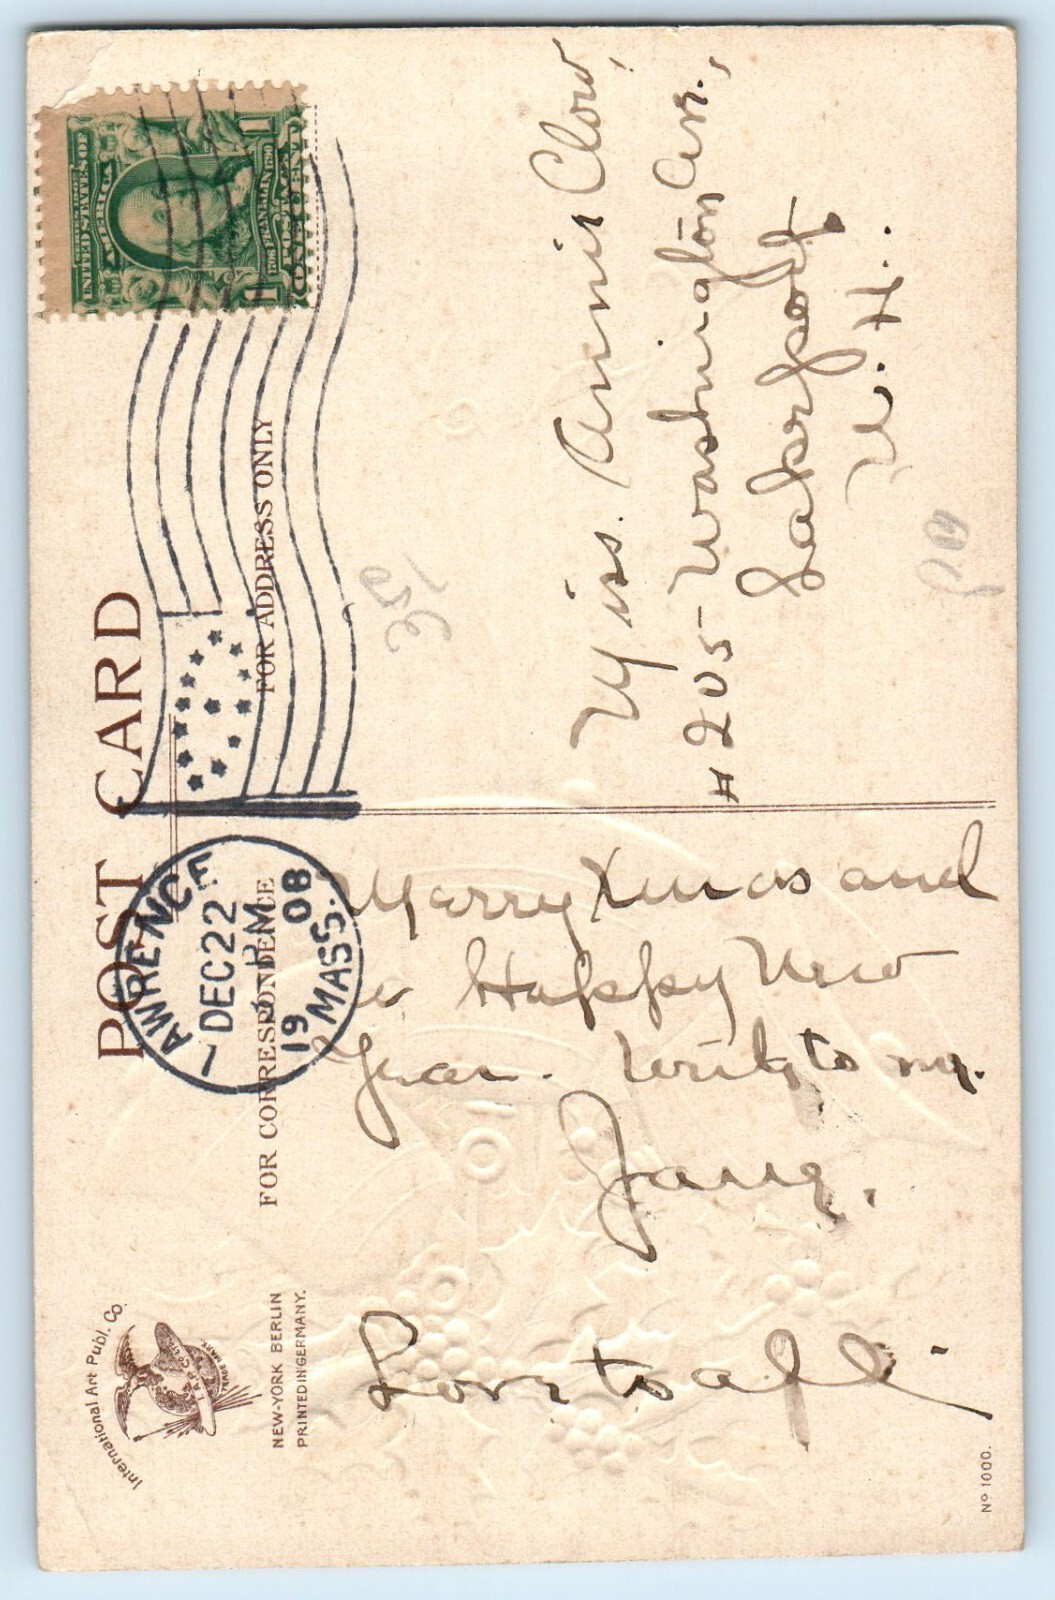 POST CARD
FOR CORRESPONDENCE
FOR ADDRESS ONLY
LAWRENCE
DEC 22
PM
1908
MASS.
UNITED STATES OF
AMERICA
1706 FRANKLIN 1790
POSTAGE
ONE CENT
1 1
Merry Xmas and
a Happy New
Year. Write to me.
Love to all.
Miss. Annie Clow,
#205 Washington Ave.,
Lakeport,
N. H.
International Art Publ. Co.
TRADE MARK
NEW-YORK BERLIN
PRINTED IN GERMANY.
Nº 1000.